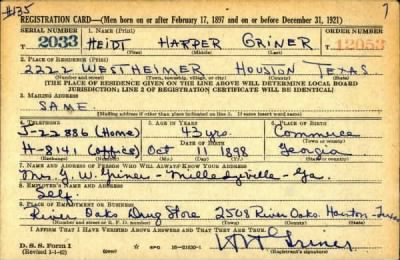 #135
7
REGISTRATION CARD—(Men born on or after February 17, 1897 and on or before December 31, 1921)
SERIAL NUMBER 1. NAME (Print) ORDER NUMBER
2033 HEIDT HARPER GRINER 12053
(First) (Middle) (Last)
2. PLACE OF RESIDENCE (Print)
2222 WESTHEIMER HOUSTON TEXAS
(Number and street) (Town, township, village, or city) (County) (State)
[THE PLACE OF RESIDENCE GIVEN ON THE LINE ABOVE WILL DETERMINE LOCAL BOARD
JURISDICTION; LINE 2 OF REGISTRATION CERTIFICATE WILL BE IDENTICAL]
3. MAILING ADDRESS
SAME.
[Mailing address if other than place indicated on line 2. If same insert word same]
4. TELEPHONE 5. AGE IN YEARS 6. PLACE OF BIRTH
J-22886 (Home) 43 yrs. Commerce
DATE OF BIRTH
H-8141 (office) Oct 11 1898 Georgia
(Exchange) (Number) (Mo.) (Day) (Yr.) (State or country)
7. NAME AND ADDRESS OF PERSON WHO WILL ALWAYS KNOW YOUR ADDRESS
Mrs. G. W. Griner - Milledgeville - Ga.
8. EMPLOYER'S NAME AND ADDRESS
Self
9. PLACE OF EMPLOYMENT OR BUSINESS
River Oaks Drug Store 2508 River Oaks. Houston - Texas
(Number and street or R. F. D. number) (Town) (County) (State)
I AFFIRM THAT I HAVE VERIFIED ABOVE ANSWERS AND THAT THEY ARE TRUE.
D. S. S. Form 1
(Revised 1-1-42) (over) GPO 16—21630-1 HH Griner
(Registrant's signature)